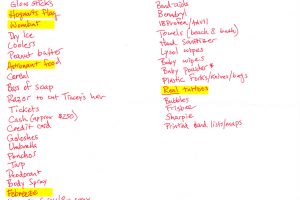 Glow sticks
Hogwarts Flag
Wombat
Dry Ice
Cooless
Peanut butter
Astronaut food
Cereal
Bars of soap
Razor to cut Tracey's hair
Tickets
Cash (approx $250)
Credit card
Galoshes
Umbrella
Ponchos
Tarp
Deodorant
Body Spray
Febreeze
Band-aids
Benadryl
IBProfen/Advil
Towels (beach & bath)
Hand Sanitizer
Lysol wipes
Baby wipes
Baby Powder
Plastic Forks/Knives/bags
Real tattoos
Bubbles
Frisbee
Sharpie
Printed Band lists/maps